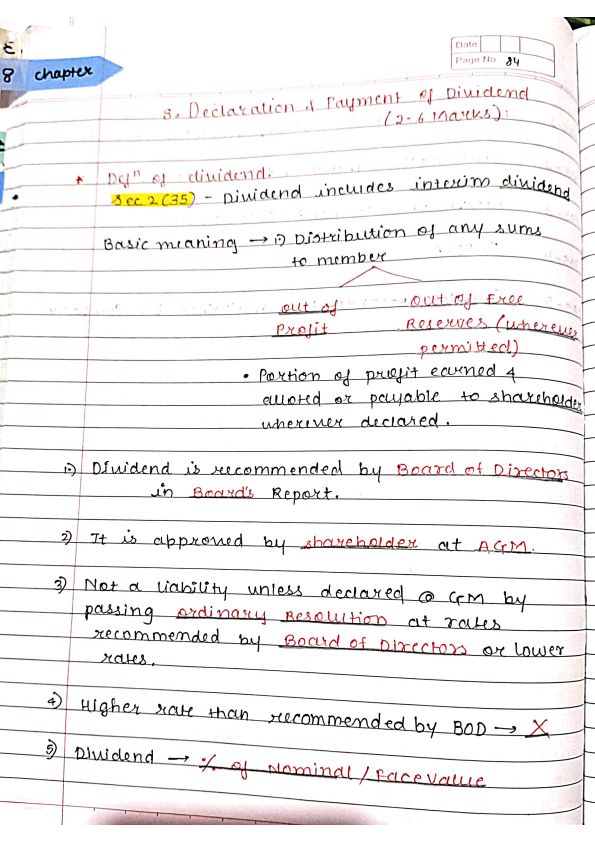 8 chapter
Date
Page No. 84
8. Declaration & Payment of Dividend
(2-6 Marks):
* Defⁿ of dividend:
• Sec 2(35) - Dividend includes interim dividend
Basic meaning → i) Distribution of any sums
to member
out of Profit
out of Free Reserves (wherever permitted)
• Portion of profit earned &
alloted or payable to shareholder
wherever declared.
1) Dividend is recommended by Board of Directors
in Board's Report.
2) It is approved by shareholder at AGM.
3) Not a liability unless declared @ GM by
passing ordinary Resolution at rates
recommended by Board of Directors or lower
rates.
4) Higher rate than recommended by BOD → X
5) Dividend → % of Nominal / Face Value